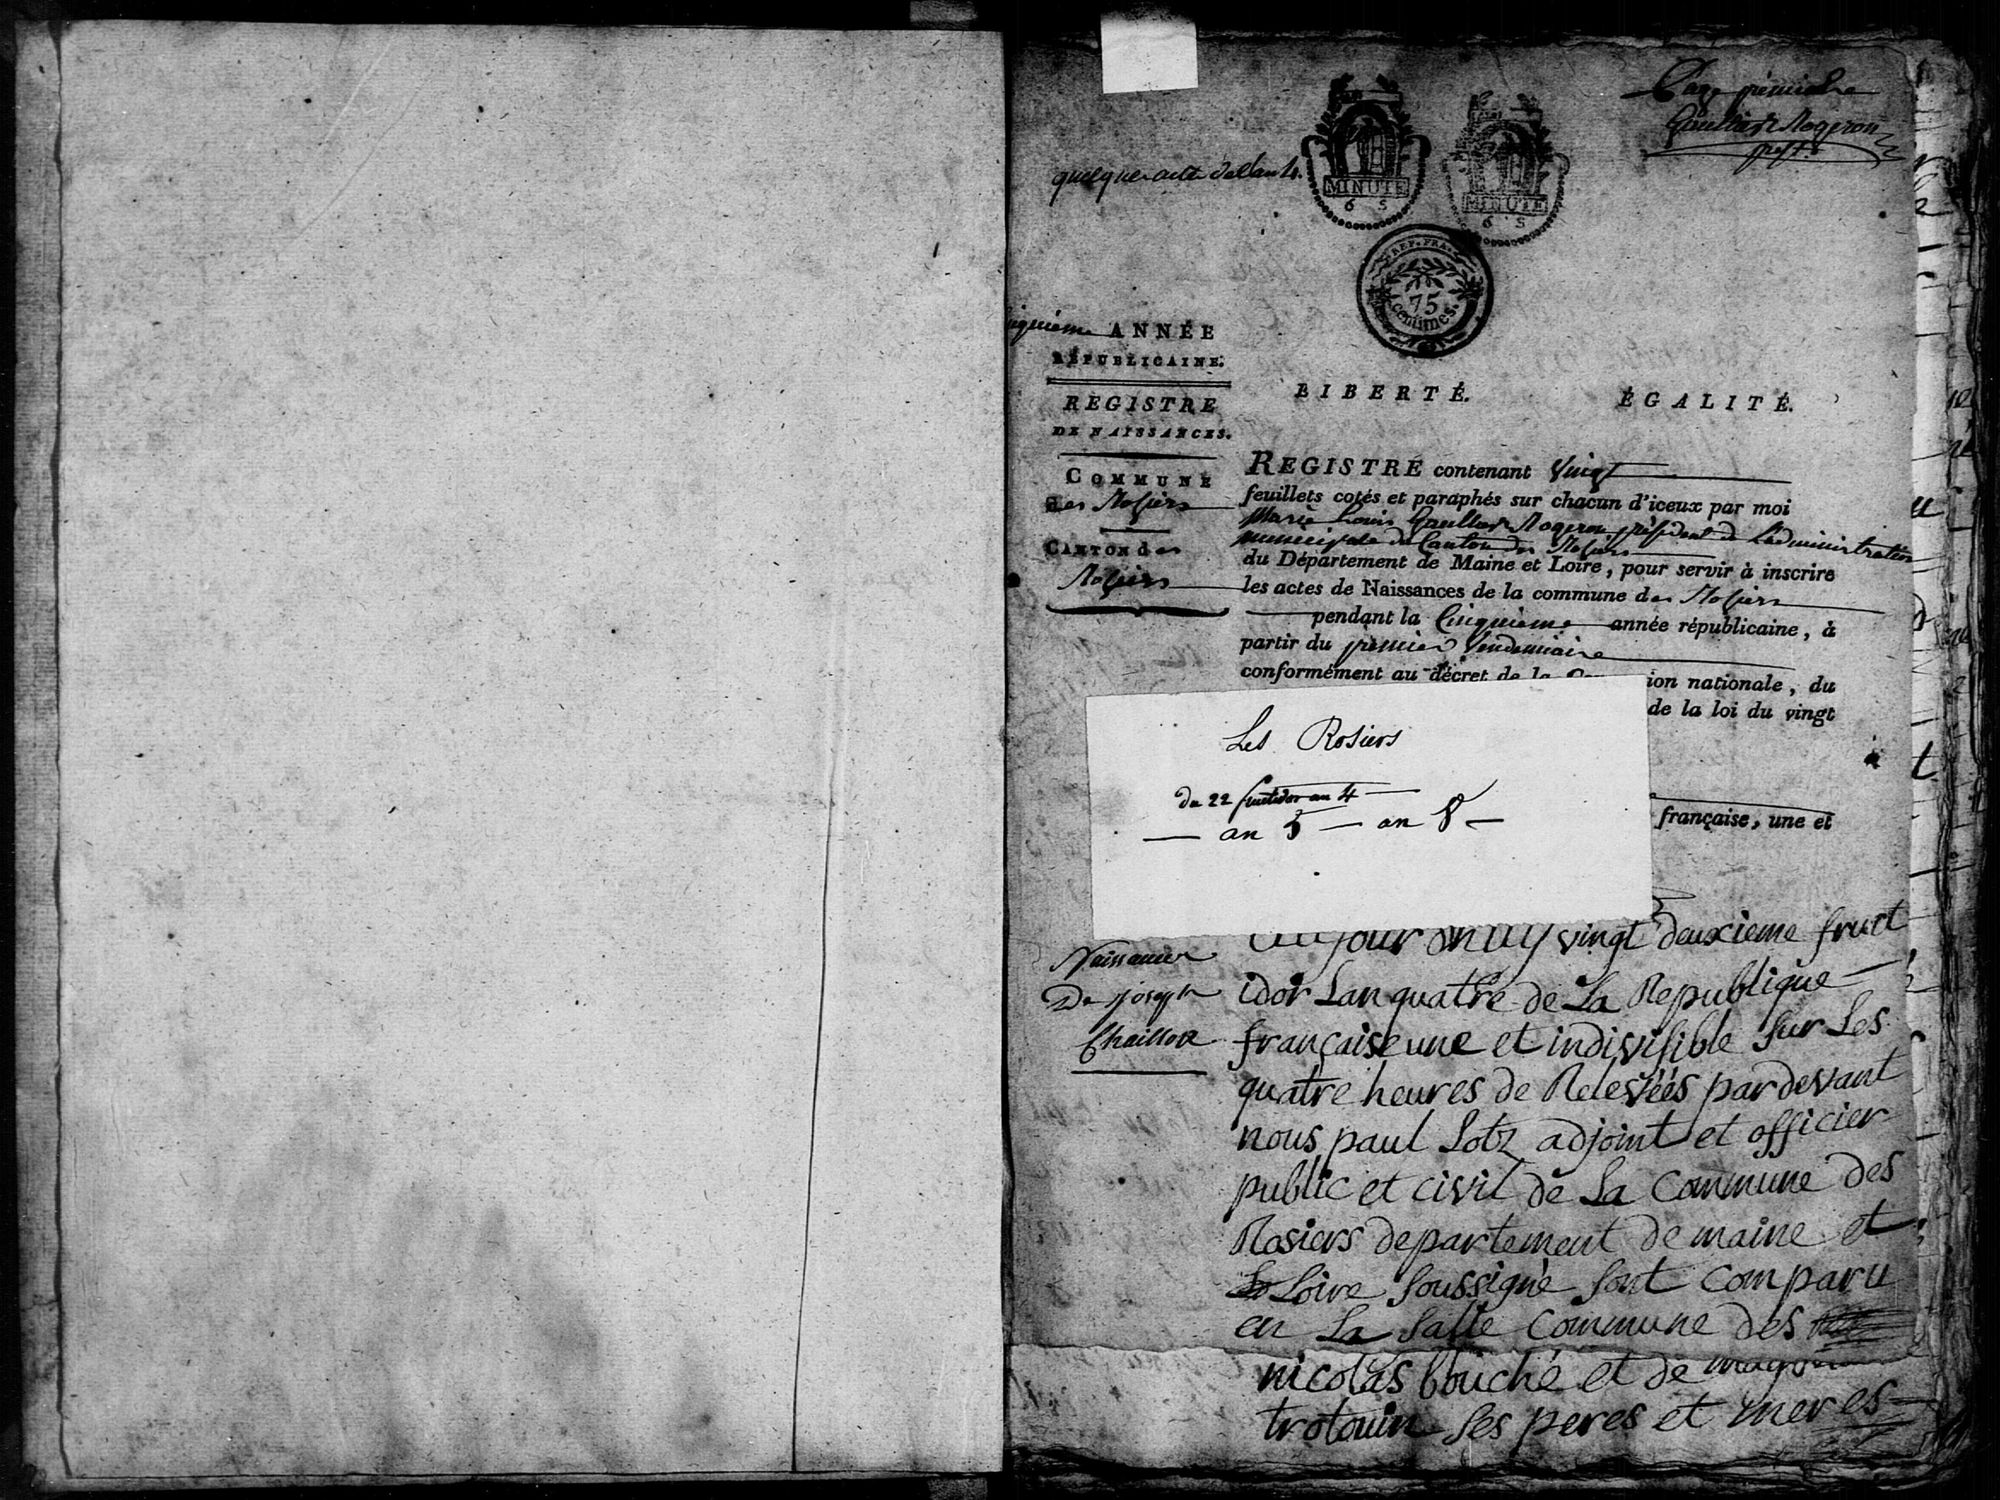 Page première
Gaullier Rogeron
presdt
quelques acte de l'an 4.
MINUTE
6 S
MINUTE
6 S
RÉP. FRA.
75
centimes.
cinquième ANNÉE
RÉPUBLICAINE.
REGISTRE
DE NAISSANCES.
COMMUNE
des Rosiers
CANTON des
Rosiers
LIBERTÉ.
ÉGALITÉ.
REGISTRE contenant vingt
feuillets cotés et paraphés sur chacun d'iceux par moi
Marie Louis Gaullier Rogeron président de l'administration
municipale du Canton des Rosiers
du Département de Maine et Loire, pour servir à inscrire
les actes de Naissances de la commune des Rosiers
pendant la Cinquième année républicaine, à
partir du premier Vendemiaire
conformément au décret de la
ion nationale, du
de la loi du vingt
française, une et
Les Rosiers
du 22 fructidor an 4
an 5 — an 8
Naissance
De joseph
Chaillou
aujourdhuy vingt deuxieme fruct
idor Lan quatre de La Republique
française une et indivisible sur Les
quatre heures de Relevéés pardevant
nous paul Lotz adjoint et officier
public et civil de La Commune des
Rosiers departement de maine et
Loire soussigné sont comparu
en La salle Commune des
nicolas bouché et de
trotouin ses peres et meres